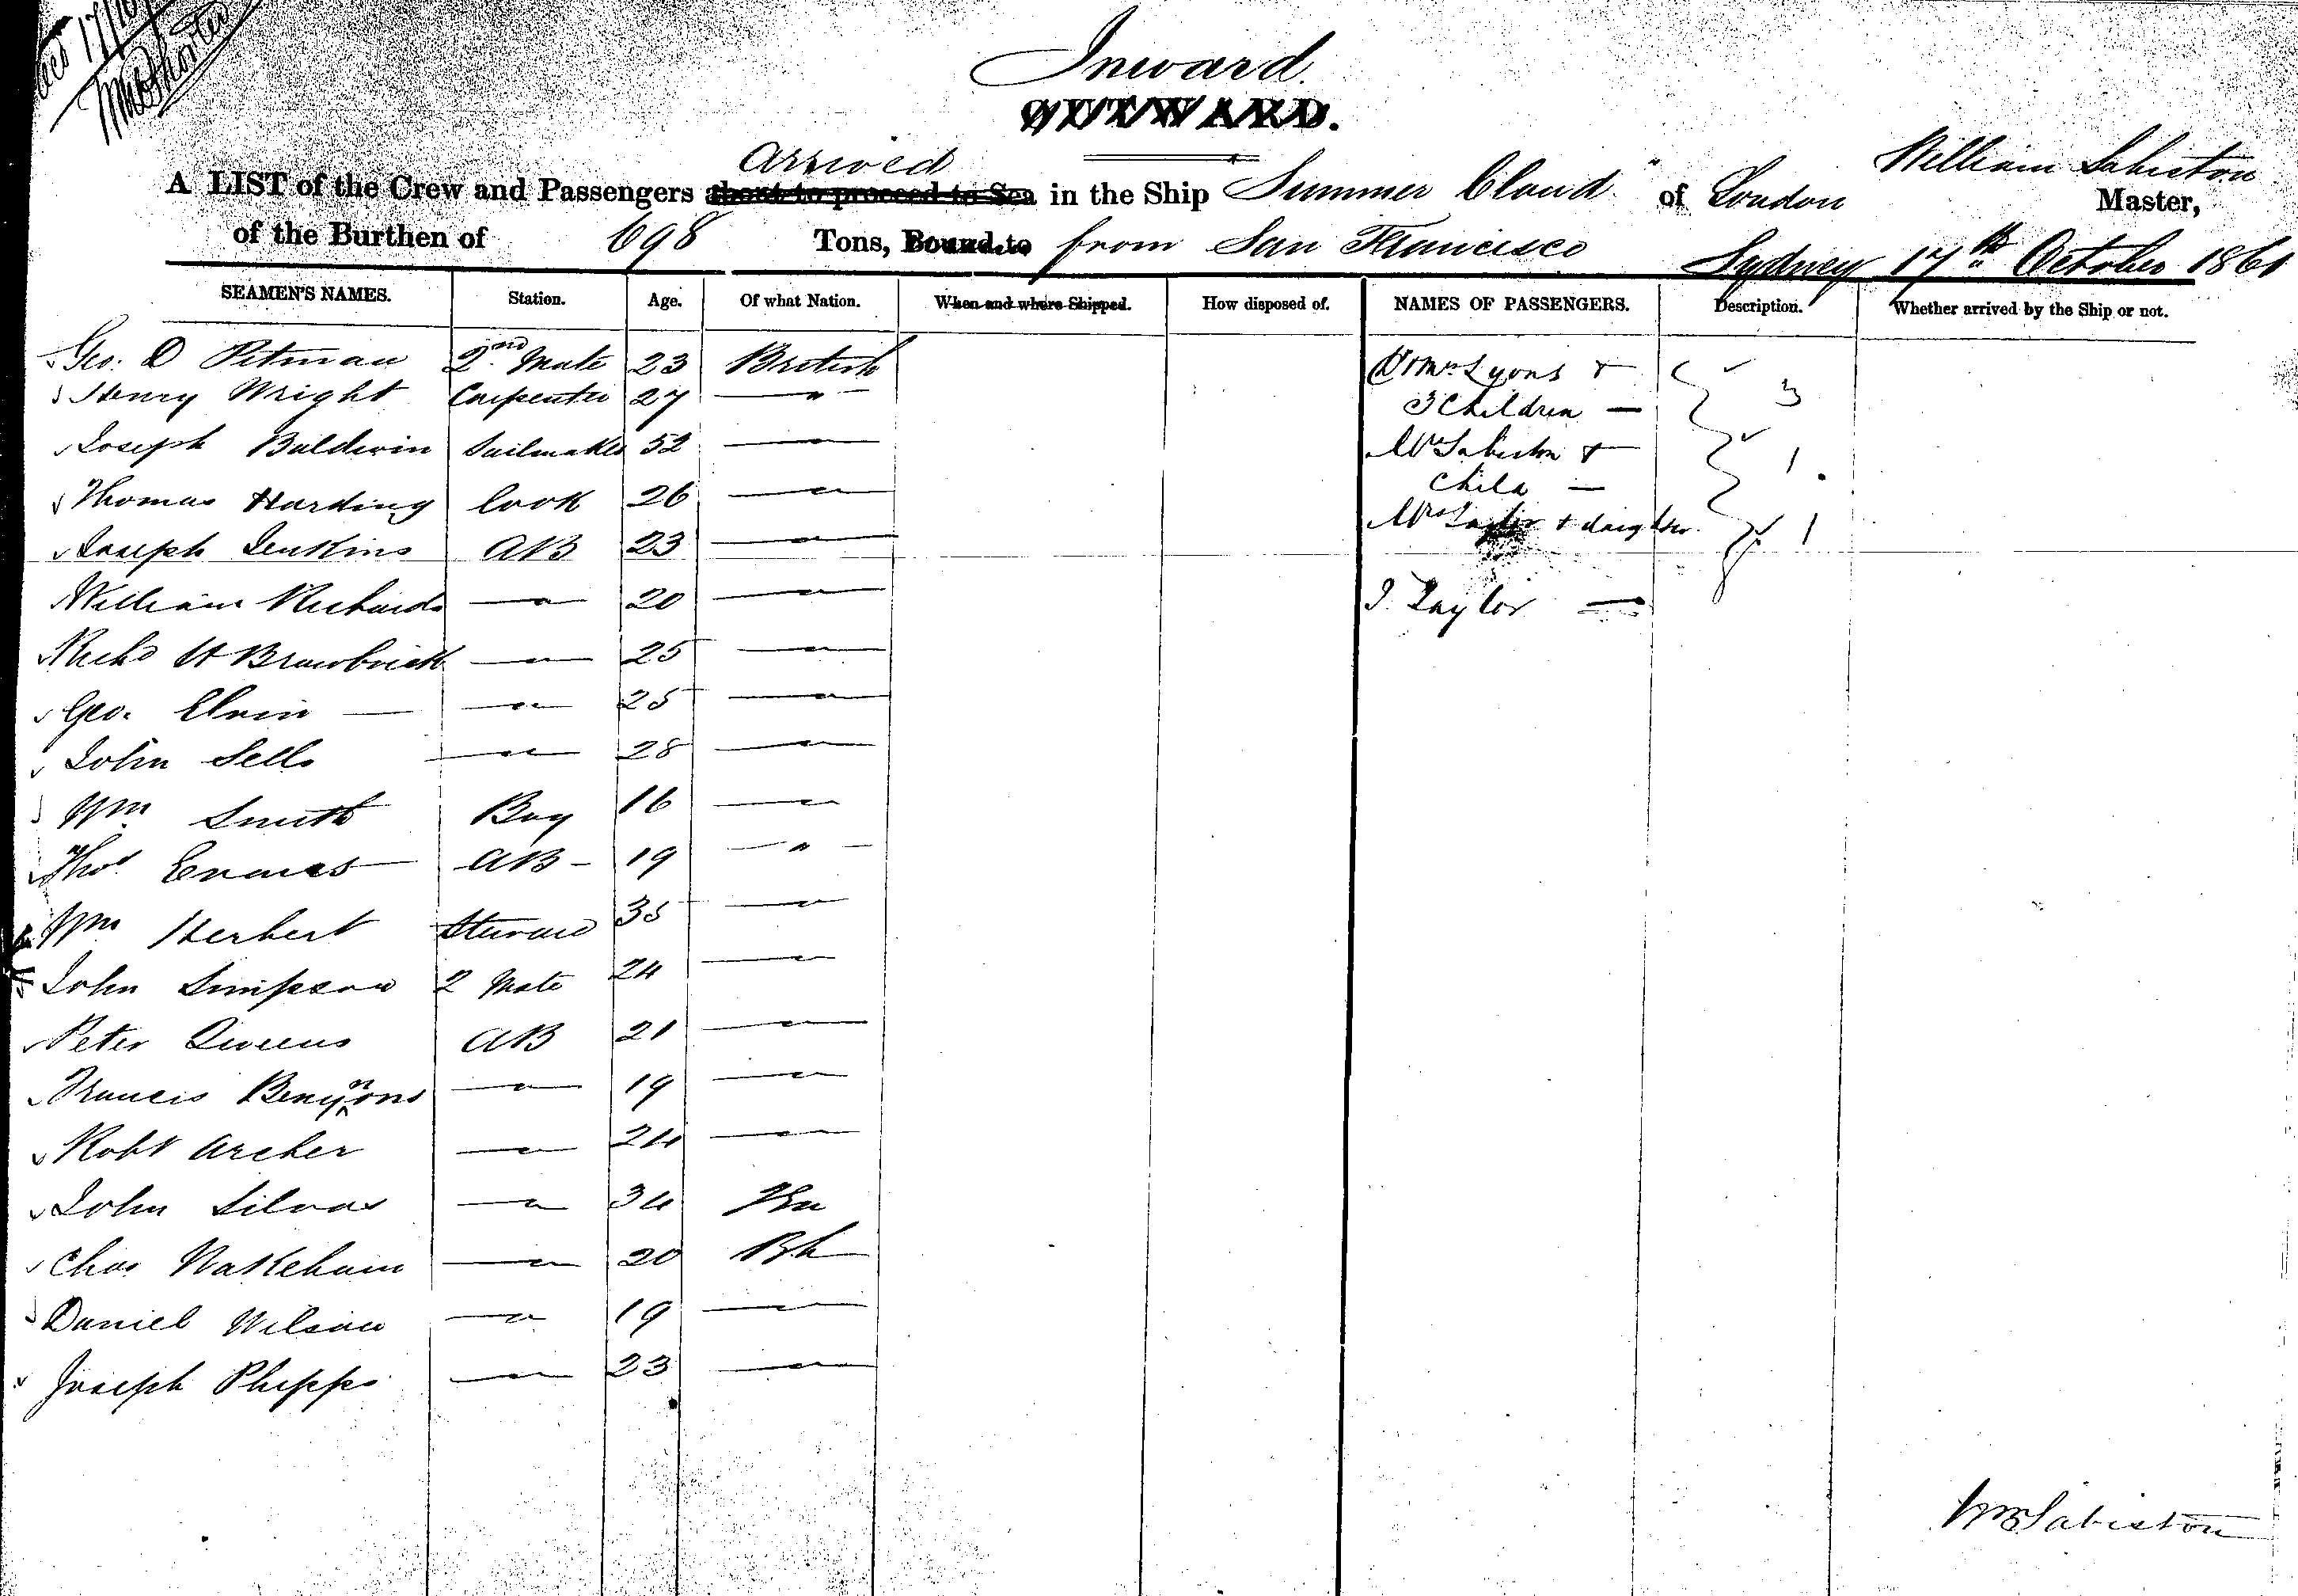 Inward.
OUTWARD.
arrived
William Sabiston
A LIST of the Crew and Passengers about to proceed to Sea in the Ship "Summer Cloud" of London Master,
of the Burthen of 698 Tons, Bound to from San Francisco Sydney 17th October 1861
SEAMEN'S NAMES. Station. Age. Of what Nation. When and where Shipped. How disposed of. NAMES OF PASSENGERS. Description. Whether arrived by the Ship or not.
Geo. D Pitman 2nd Mate 23 British Lyons +
Henry Wright Carpenter 27 — " — 3 Children — 3
Joseph Baldwin Sailmaker 52 — " — Mrs Sabiston + 1
Thomas Harding Cook 26 — " — Child —
Joseph Jenkins AB 23 — " — Mrs Taylor + daughter. 1
William Richards — " — 20 — " — J. Taylor —
Richd H — " — 25 — " —
Geo. Elvin — — " — 25 — " —
John Sells — " — 28 — " —
Wm Smith Boy 16 — " —
Thos Evans — AB — 19 — " —
Wm Herbert Steward 35 — " —
John Simpson 2 Mate 24 — " —
Peter Queens AB 21 — " —
Francis Benyons — " — 19 — " —
Robt Archer — " — 24 — " —
John Silvas — " — 34
Chas Wakeham — " — 20 Bh
Daniel Wilson — " — 19 — " —
Joseph Phipps — " — 23 — " —
Wm Sabiston